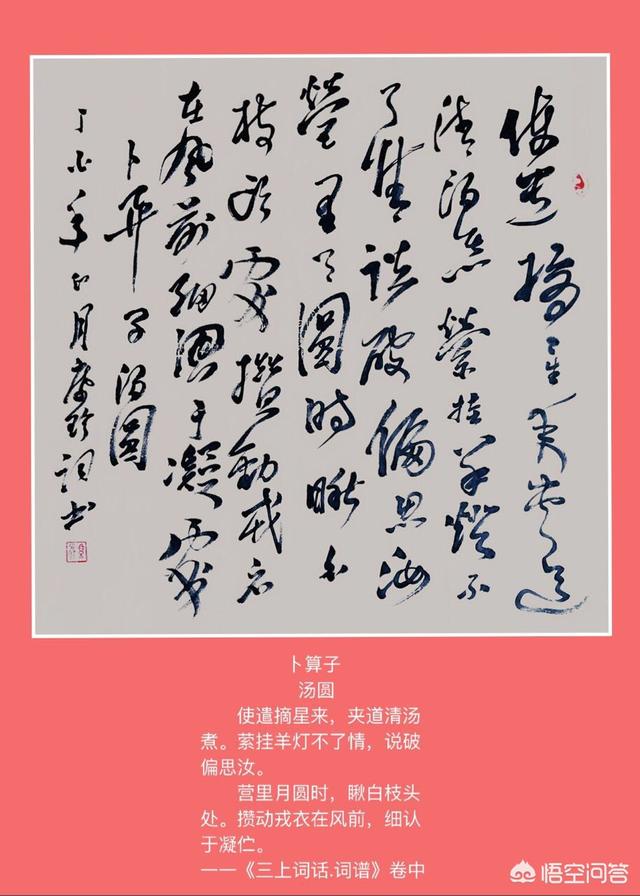 使遣摘星来夹道
清汤煮萦挂羊灯不
了情说破偏思汝
营里月圆时瞅白
枝头处攒动戎衣
在风前细认于凝伫
卜算子汤圆
年 月 词书
卜算子
汤圆
使遣摘星来，夹道清汤
煮。萦挂羊灯不了情，说破
偏思汝。
营里月圆时，瞅白枝头
处。攒动戎衣在风前，细认
于凝伫。
——《三上词话.词谱》卷中
悟空问答